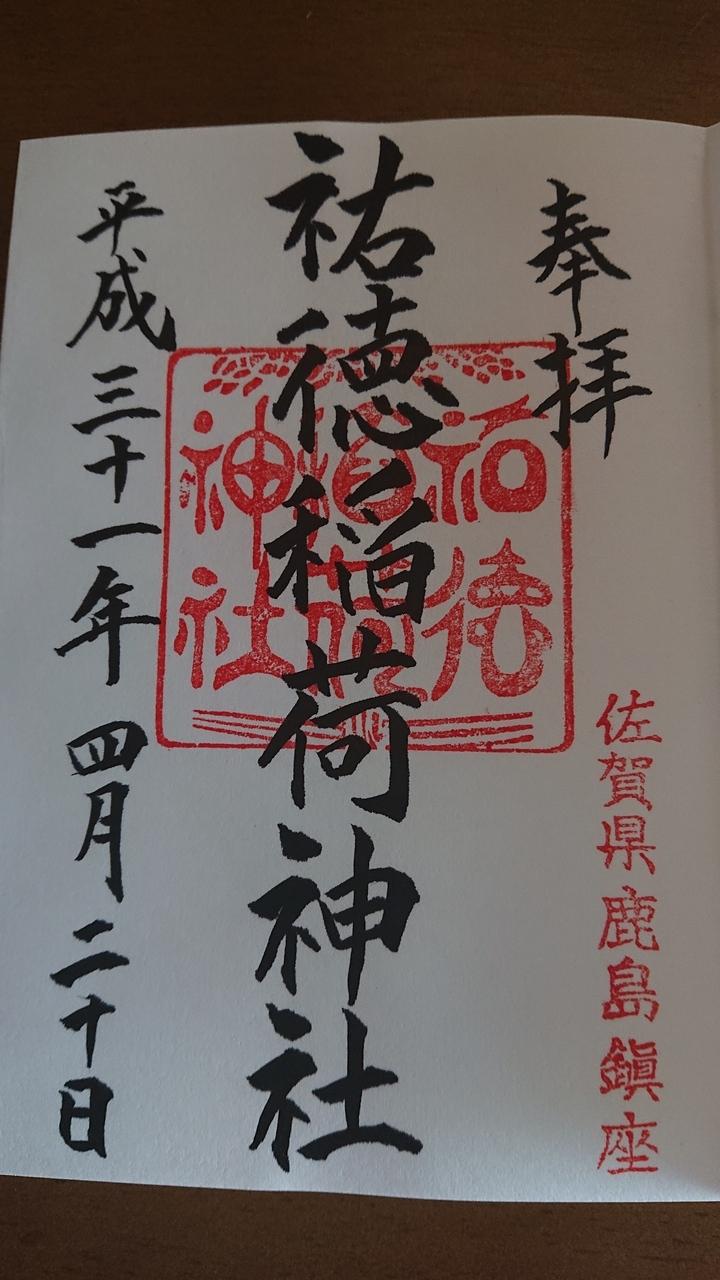 奉拝
佐賀県鹿島鎮座
祐徳稲荷神社
祐徳
稲荷
神社
平成三十一年四月二十日